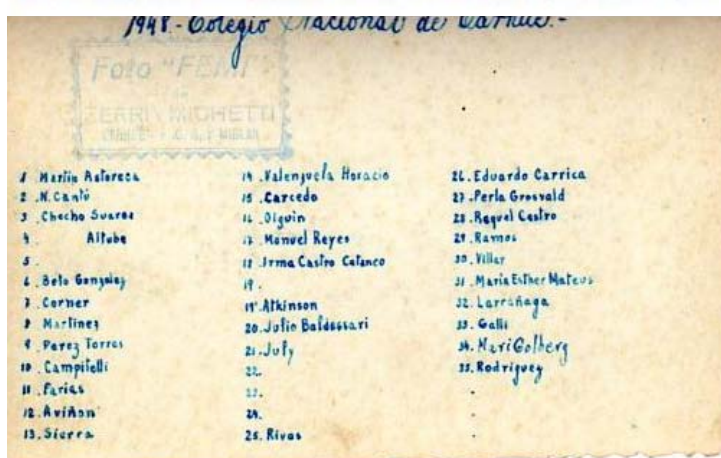 1948.- Colegio Nacional de Carhué.-
Foto "FEMI"
1 Martín Astoreca
2 N. Cantú
3 Checho Suarez
4 . Altube
5 .
6 . Beto Gonzalez
7 . Corner
8 Martínez
9 . Perez Torres
10 . Campitelli
11 . Farias
12 . Aviñon
13. Sierra
14 . Valenzuela Horacio
15 . Carcedo
16 . Olguin
17 . Manuel Reyes
18 . Irma Castro Catanco
19 .
19' Atkinson
20. Julio Baldassari
21. July
22.
23.
24.
25. Rivas
26. Eduardo Carrica
27. Perla Grosvald
28. Raquel Castro
29. Ramos
30. Villar
31 . Maria Esther Mateus
32. Larrañaga
33. Galli
34. Mari Golberg
35. Rodriguez